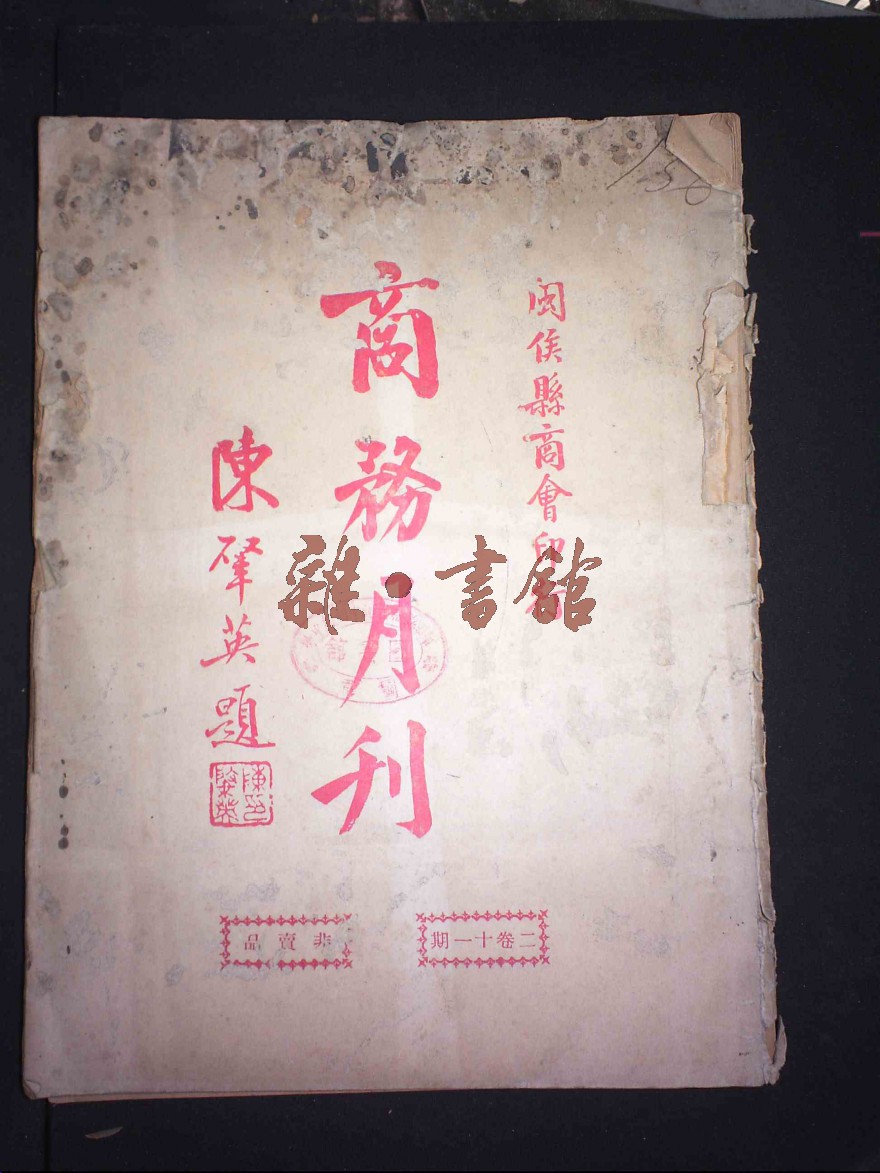 閩侯縣商會印
商務月刊
陳肈英題
雜·書館
二卷十一期
非賣品